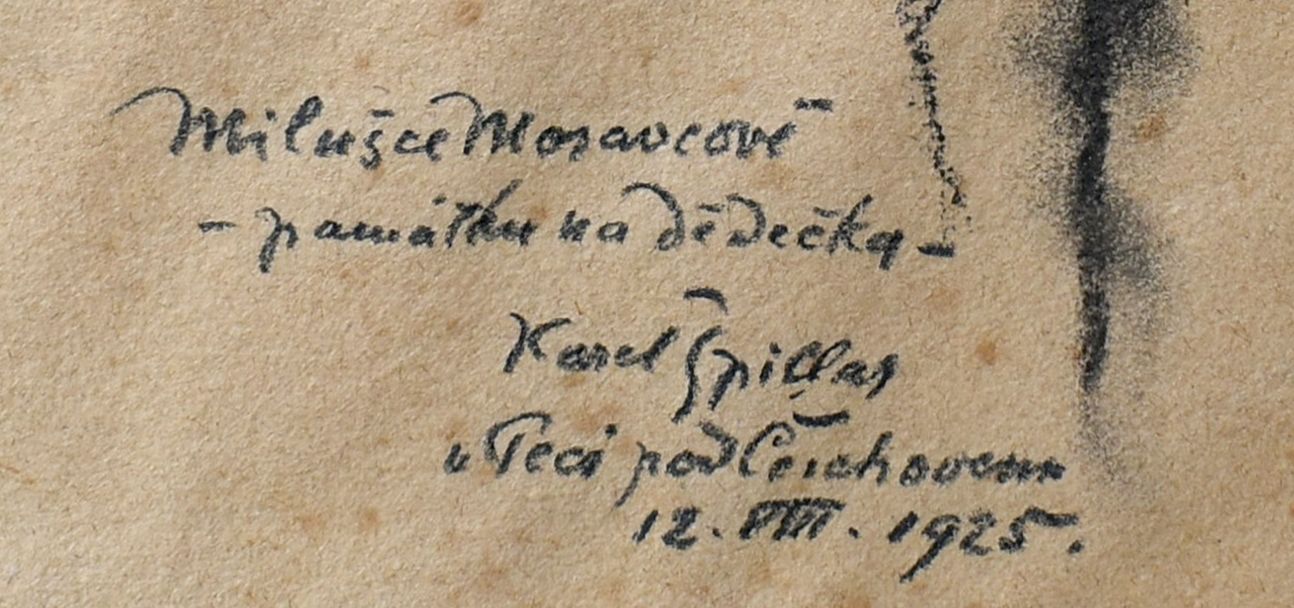 Milušce Moravcové
- památku na dědečka -
Karel Špillar
v Peci pod Čerchovem
12. VIII. 1925.